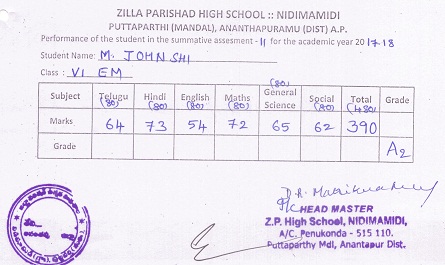 ZILLA PARISHAD HIGH SCHOOL :: NIDIMAMIDI
PUTTAPARTHI (MANDAL), ANANTHAPURAMU (DIST) A.P.
Performance of the student in the summative assesment - II for the academic year 2017-18
Student Name: M. JOHN SHI
Class : VI EM
Subject Telugu (80) Hindi (80) English (80) Maths (80) General Science (80) Social (80) Total (480) Grade
Marks 64 73 54 72 65 62 390
Grade A2
HEAD MASTER
Z.P. High School, NIDIMAMIDI,
A/C. Penukonda - 515 110.
Puttaparthy Mdl, Anantapur Dist.